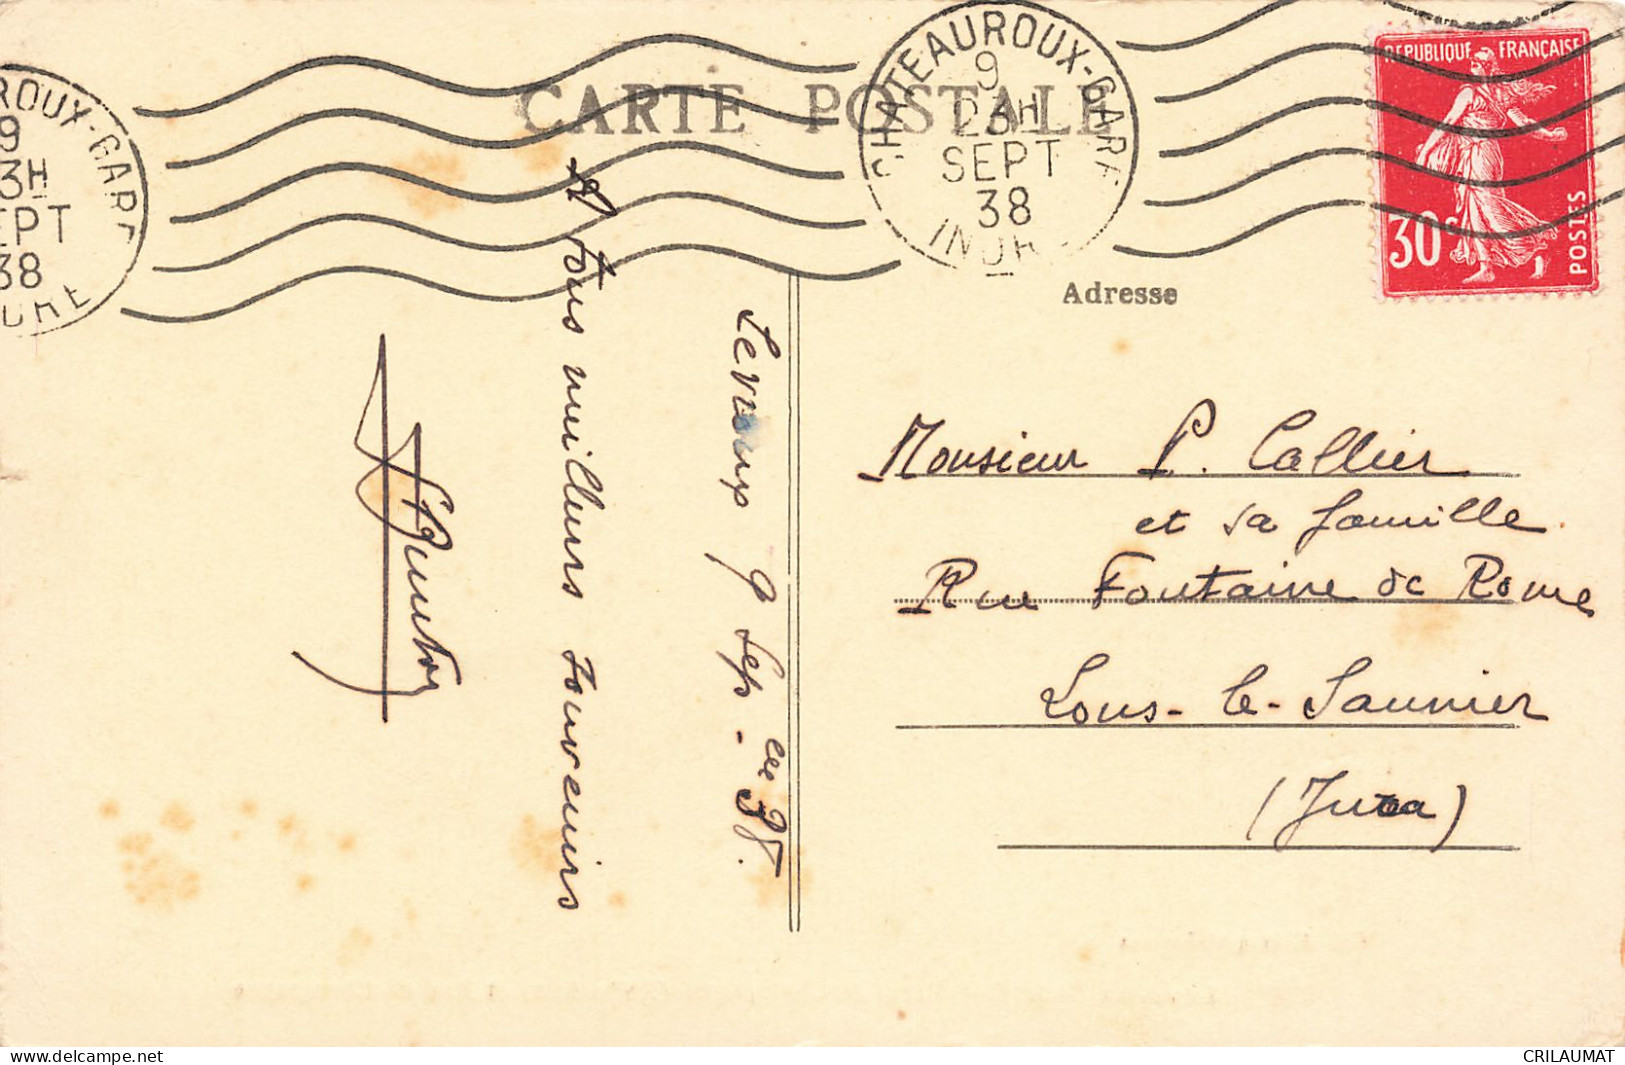 CARTE POSTALE
CHATEAUROUX-GARE
9
23H
SEPT
38
INDRE
ROUX-GARE
9
3H
EPT
38
DRE
REPUBLIQUE FRANÇAISE
30c
POSTES
Adresse
Levroux 9 Sep. - 38.
Tous meilleurs Souvenirs
Monsieur P. Callier
et sa famille
Rue Fontaine de Rome
Lons-le-Saunier
(Jura)
www.delcampe.net
CRILAUMAT